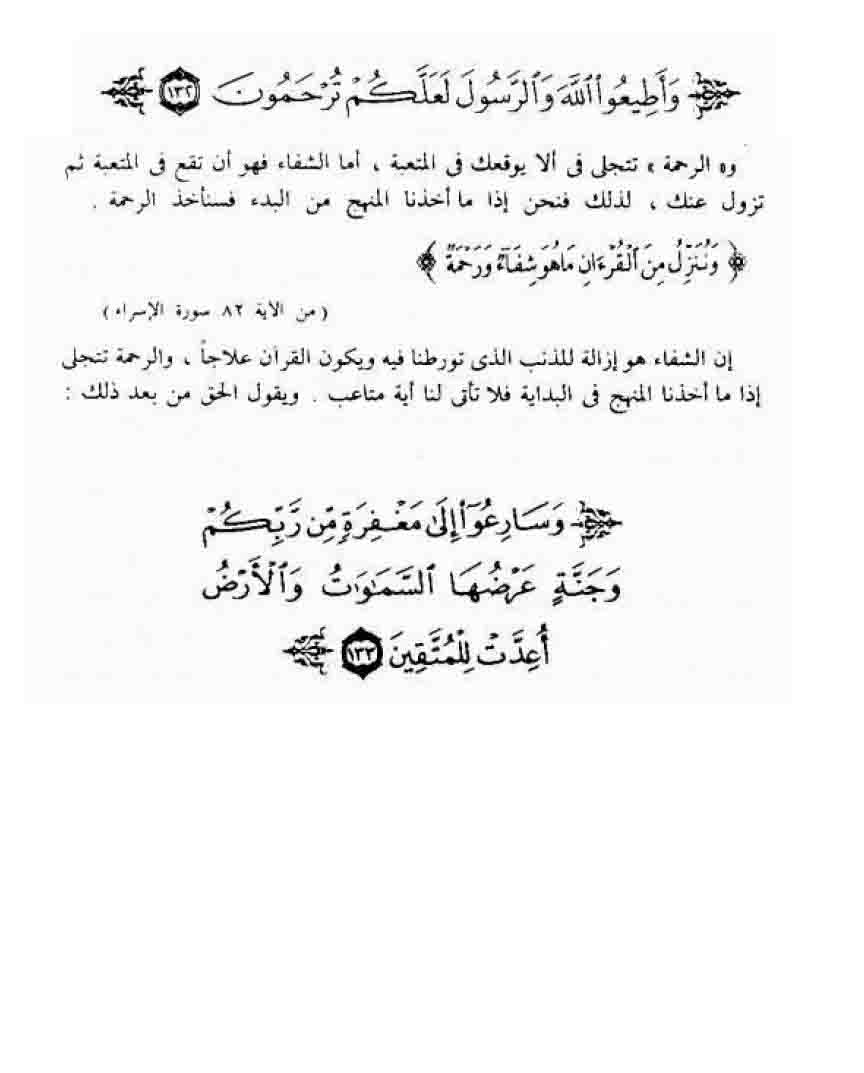 وَأَطِيعُوا۟ ٱللَّهَ وَٱلرَّسُولَ لَعَلَّكُمْ تُرْحَمُونَ ١٣٢
و« الرحمة » تتجلى فى ألا يوقعك فى المتعبة ، أما الشفاء فهو أن تقع فى المتعبة ثم
تزول عنك ، لذلك فنحن إذا ما أخذنا المنهج من البدء فسنأخذ الرحمة .
﴿ وَنُنَزِّلُ مِنَ ٱلْقُرْءَانِ مَا هُوَ شِفَآءٌ وَرَحْمَةٌ ﴾
( من الآية ٨٢ سورة الإسراء )
إن الشفاء هو إزالة للذنب الذى تورطنا فيه ويكون القرآن علاجاً ، والرحمة تتجلى
إذا ما أخذنا المنهج فى البداية فلا تأتى لنا أية متاعب . ويقول الحق من بعد ذلك :
وَسَارِعُوٓا۟ إِلَىٰ مَغْفِرَةٍ مِّن رَّبِّكُمْ
وَجَنَّةٍ عَرْضُهَا ٱلسَّمَٰوَٰتُ وَٱلْأَرْضُ
أُعِدَّتْ لِلْمُتَّقِينَ ١٣٣